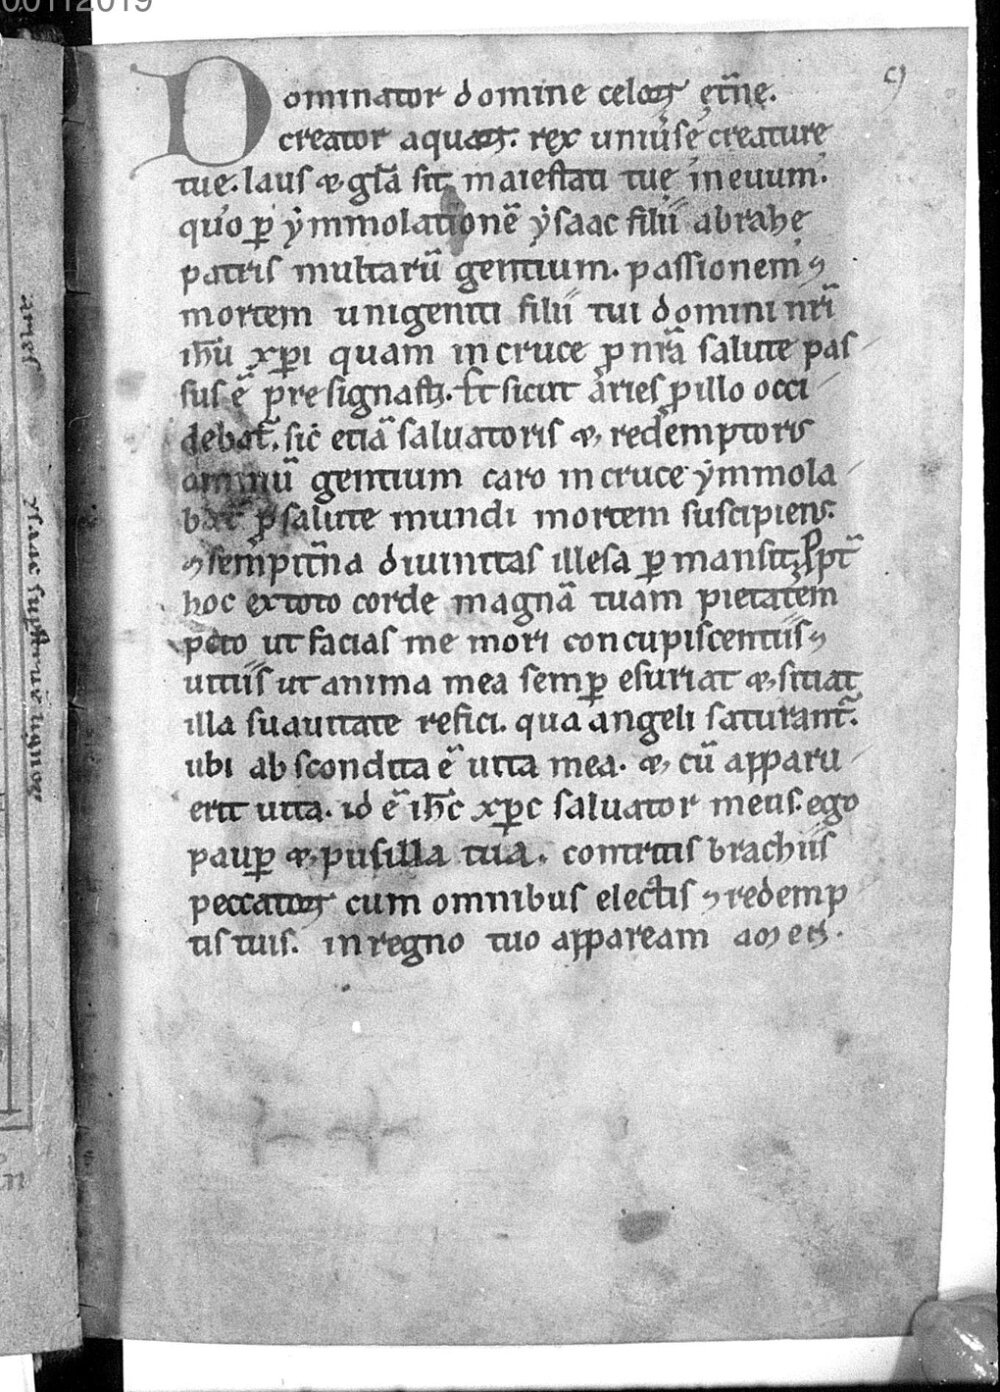 00112019
Dominator domine celoꝝ ęt̄ne.
creator aquaꝝ. rex uniuͥse creature
tue. laus & gl̄a sit maiestati tuę in euum.
quͦo ꝑ ẏmmolationē ẏsaac filii abrahę
patris multarū gentium. passionem ⁊
mortem unigeniti filii tui domini nr̄i
ih̄u xp̄i quam in cruce ꝓ nr̄a salute pas
sus ē presignasti. Et sicut aries ꝓ illo occi
debat̄. sic̄ etiā saluatoris & redemptoris
omniū gentium caro in cruce ẏmmola
bat̄ ꝓ salute mundi mortem suscipiens.
⁊ sempit̄na diuinitas illesa ꝑmansit. Ꝓpt̄
hoc ex toto corde magnā tuam pietatem
peto ut facias me mori concupiscentiis ⁊
uitiis ut anima mea semꝑ esuriat & sitiat
illa suauitate refici. qua angeli saturant̄.
ubi abscondita ē uita mea. & cū apparu
erit uita. id ē ih̄c xp̄c saluator meus. ego
pauꝑ & pusilla tua. contritis brachiis
peccatoꝝ cum omnibus electis ⁊ redemp
tis tuis. in regno tuo appaream amen.
aries
ysaac